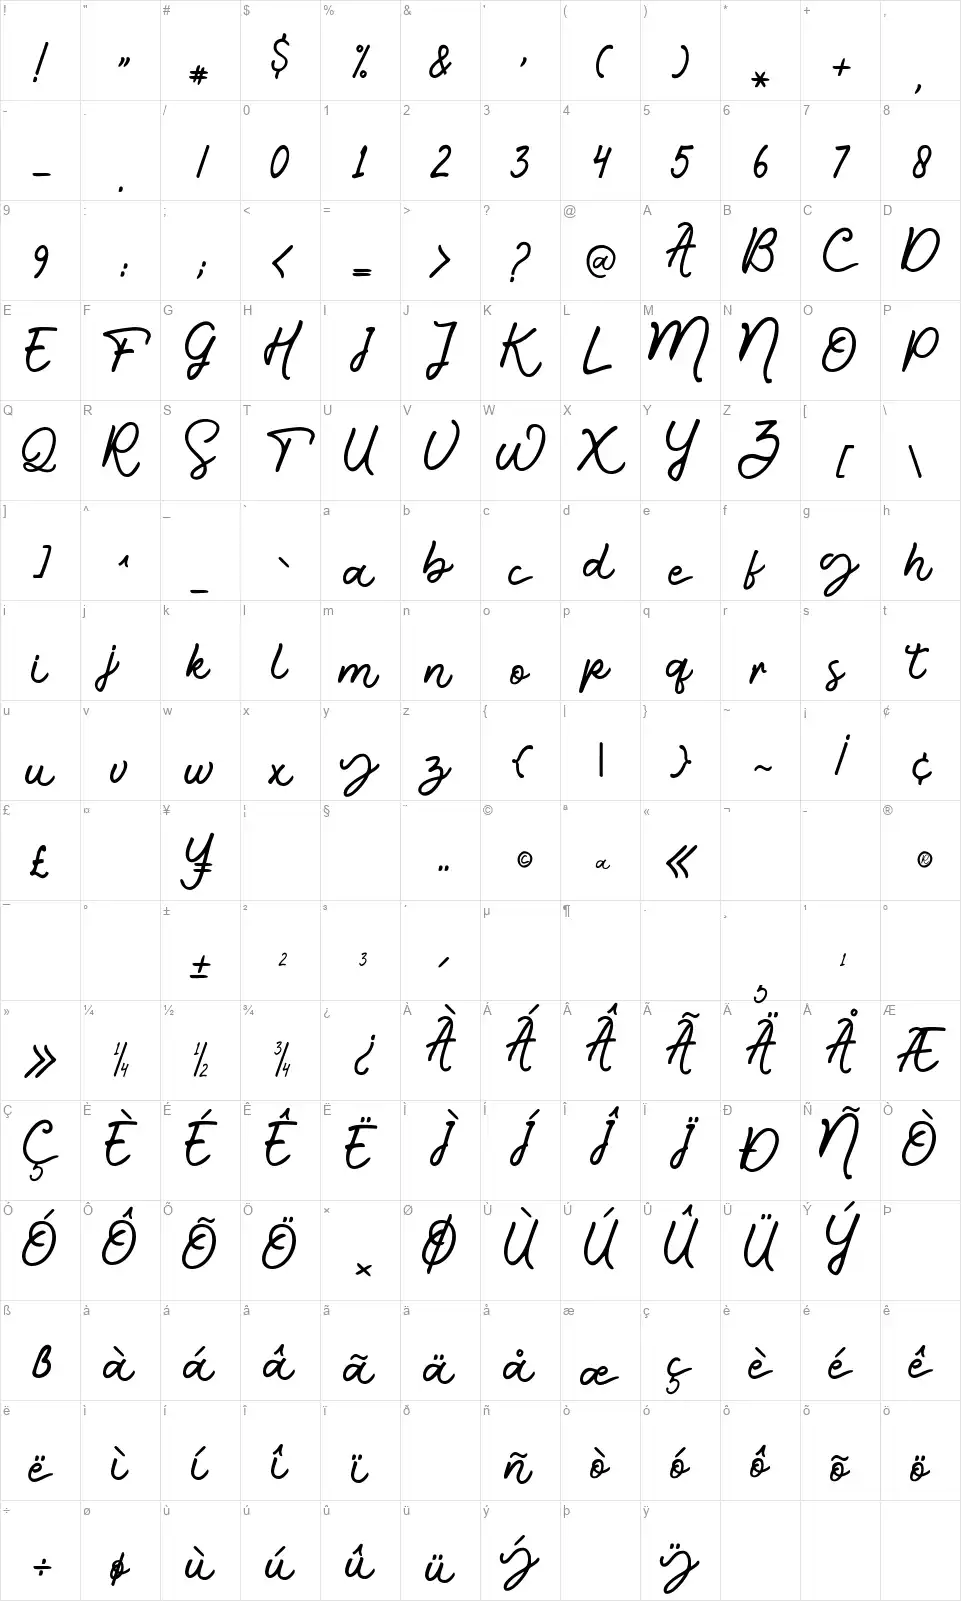 ! " # $ % & ' ( ) * + ,
! " # $ % & ' ( ) * + ,
- . / 0 1 2 3 4 5 6 7 8
- . / 0 1 2 3 4 5 6 7 8
9 : ; < = > ? @ A B C D
9 : ; < = > ? @ A B C D
E F G H I J K L M N O P
E F G H I J K L M N O P
Q R S T U V W X Y Z [ \
Q R S T U V W X Y Z [ \
] ^ _ ` a b c d e f g h
] ^ _ ` a b c d e f g h
i j k l m n o p q r s t
i j k l m n o p q r s t
u v w x y z { | } ~ ¡ ¢
u v w x y z { | } ~ ¡ ¢
£ ¤ ¥ ¦ § ¨ © ª « ¬ - ®
£ ¥ ¨ © ª « ®
¯ ° ± ² ³ ´ µ ¶ · ¸ ¹ º
± ² ³ ´ ¸ ¹
» ¼ ½ ¾ ¿ À Á Â Ã Ä Å Æ
» ¼ ½ ¾ ¿ À Á Â Ã Ä Å Æ
Ç È É Ê Ë Ì Í Î Ï Ð Ñ Ò
Ç È É Ê Ë Ì Í Î Ï Ð Ñ Ò
Ó Ô Õ Ö × Ø Ù Ú Û Ü Ý Þ
Ó Ô Õ Ö × Ø Ù Ú Û Ü Ý
ß à á â ã ä å æ ç è é ê
ß à á â ã ä å æ ç è é ê
ë ì í î ï ð ñ ò ó ô õ ö
ë ì í î ï ñ ò ó ô õ ö
÷ ø ù ú û ü ý þ ÿ
÷ ø ù ú û ü ý ÿ